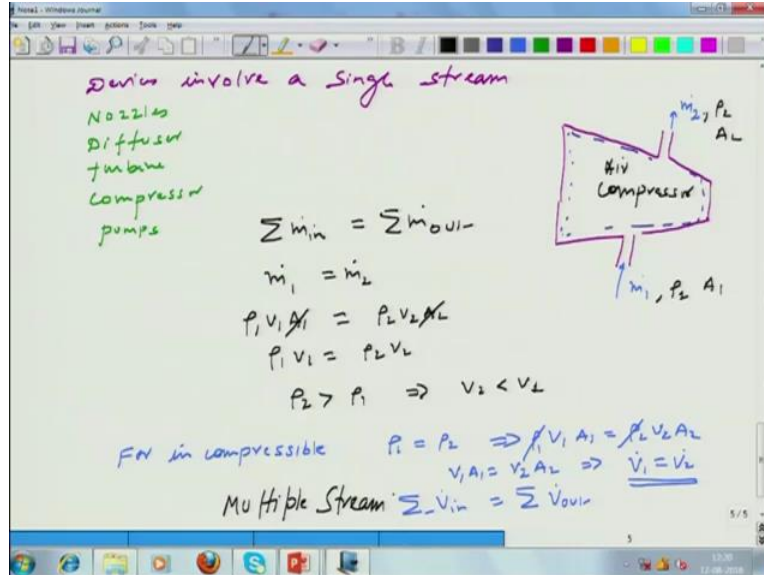 Note1 - Windows Journal
File Edit View Insert Actions Tools Help
Devices involve a Single stream
Nozzles
Diffuser
turbine
compressor
pumps
ṁ2, ρ2
A2
Air
compressor
ṁ1, ρ1 A1
Σṁin = Σṁout
ṁ1 = ṁ2
ρ1 V1 A1 = ρ2 V2 A2
ρ1 V1 = ρ2 V2
ρ2 > ρ1 ⇒ V2 < V1
For incompressible ρ1 = ρ2 ⇒ ρ1 V1 A1 = ρ2 V2 A2
V1A1 = V2 A2 ⇒ V̇1 = V̇2
Multiple Stream Σ V̇in = Σ V̇out
5/5
5
12:20
12-08-2018